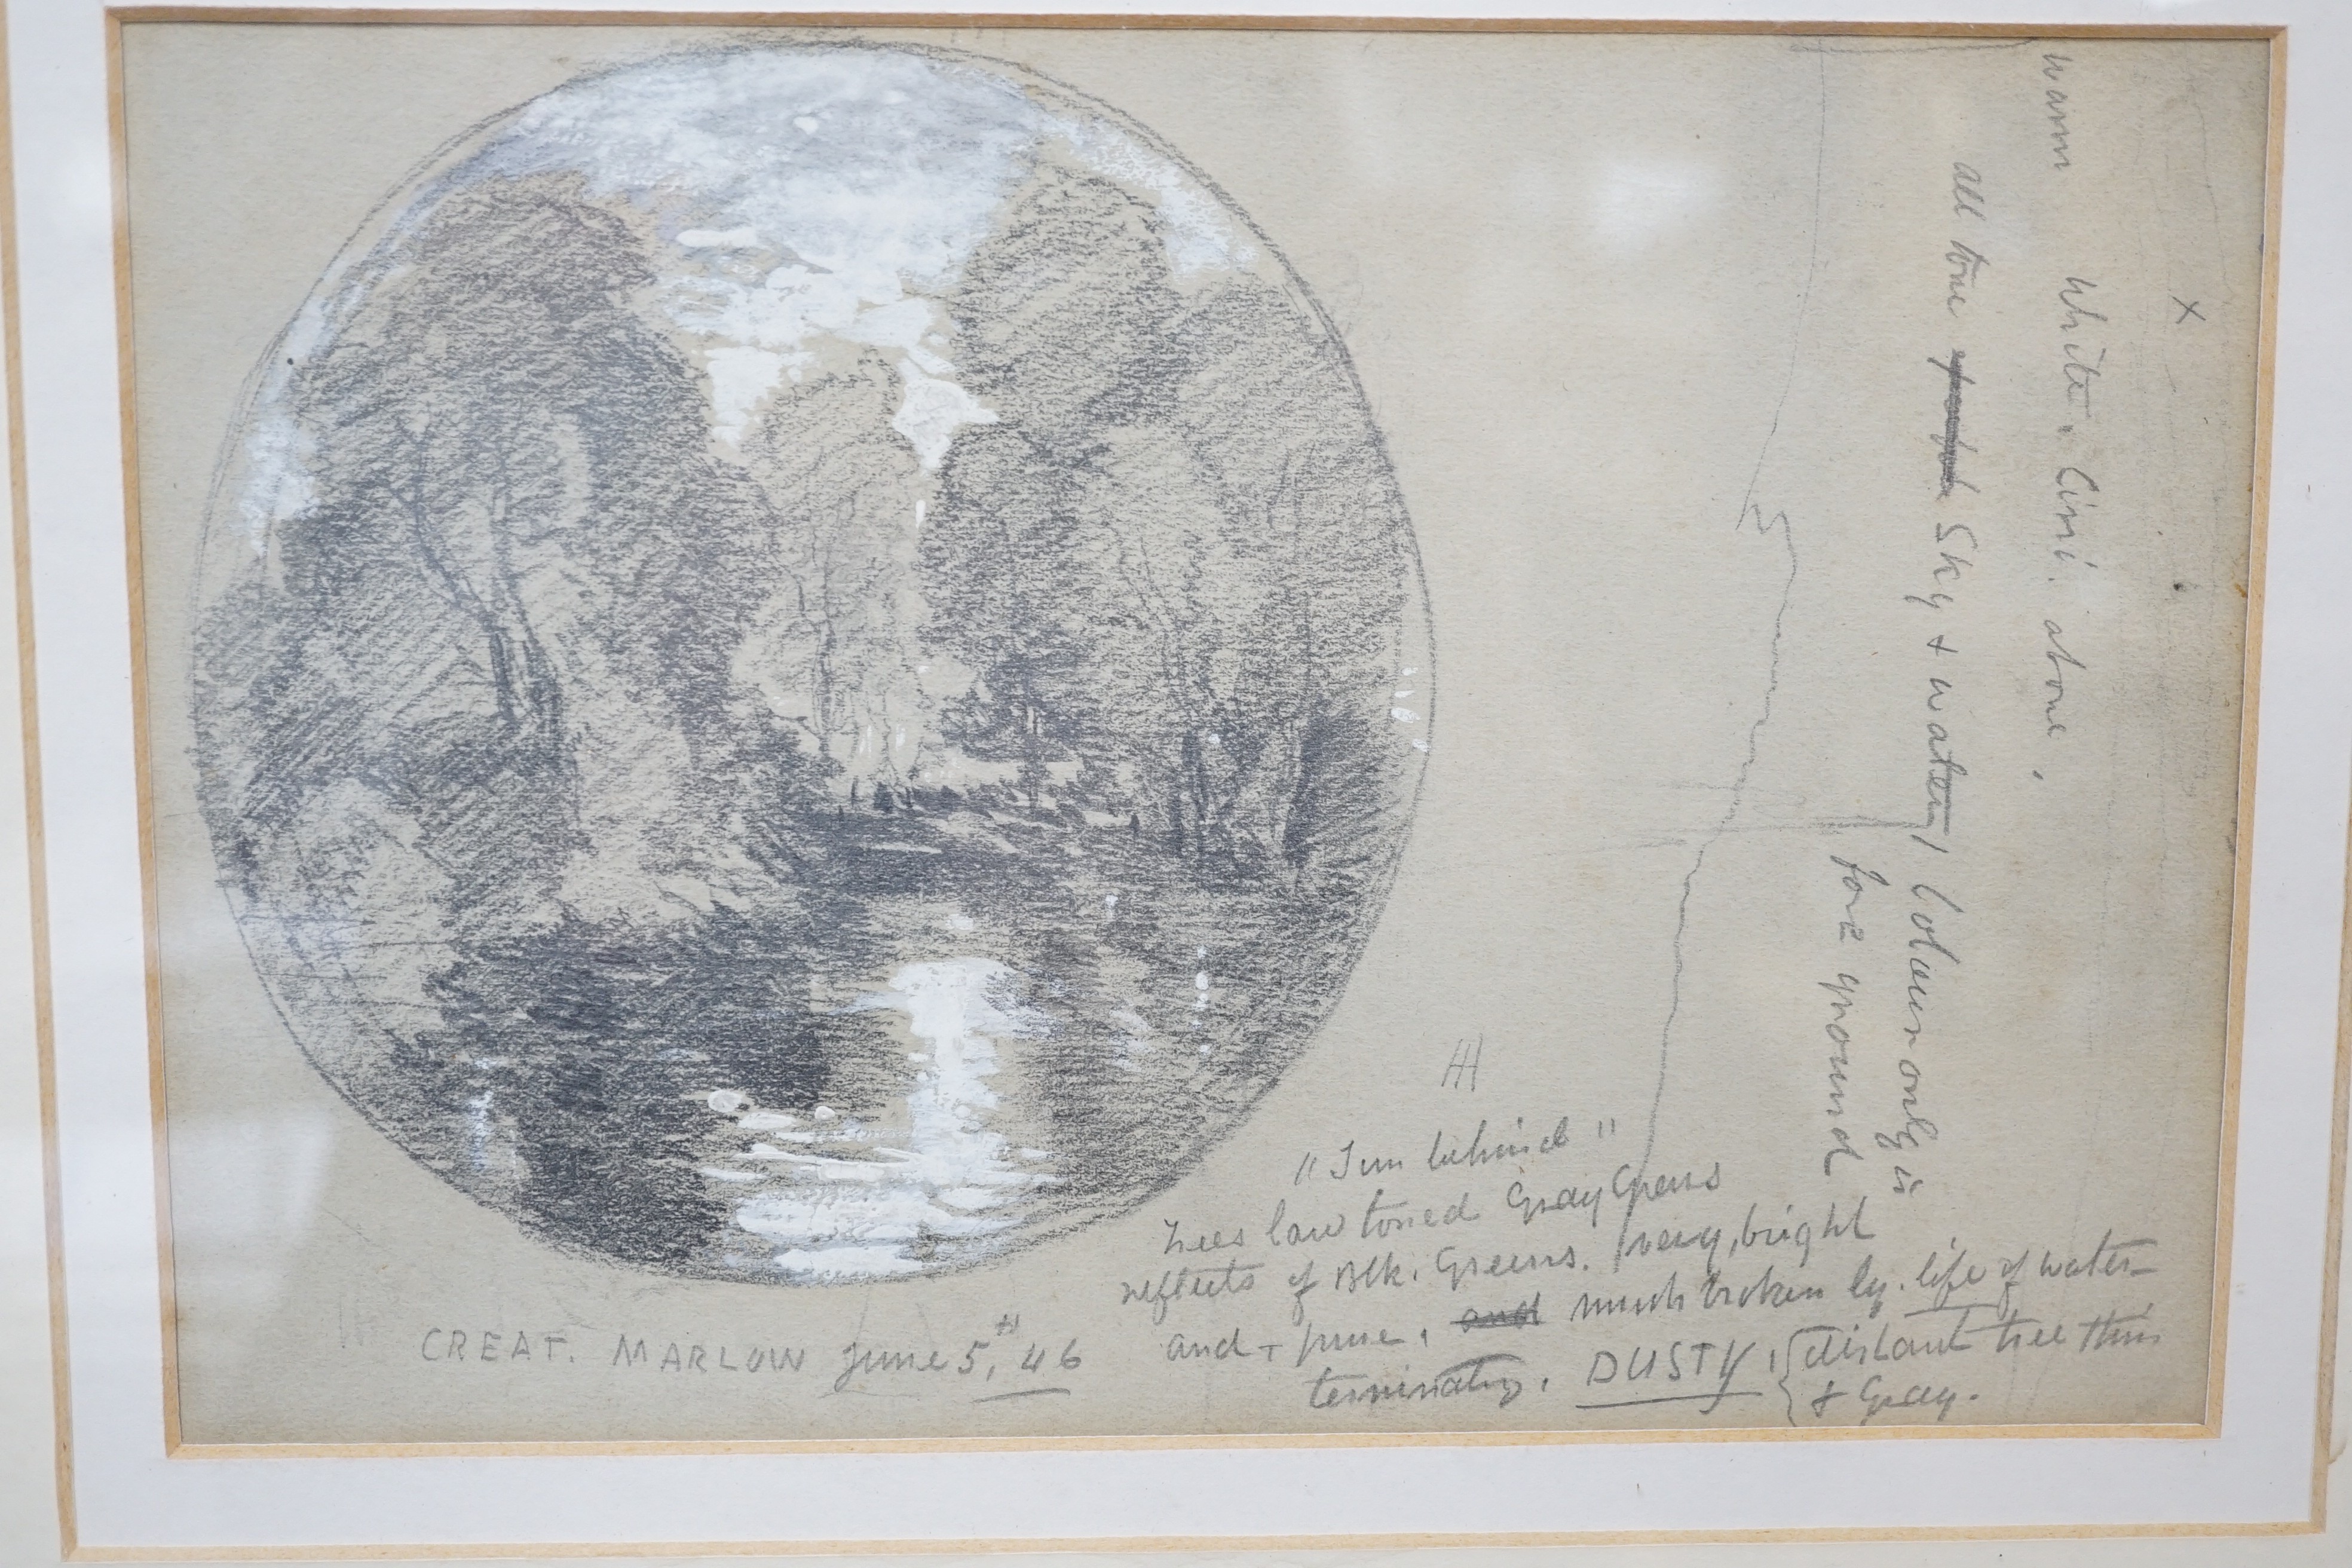 warm White. Cirri. above,
all tone Sky + water / Colour only is
fore ground
"Sun behind"
trees low toned Gray Greens
reflects of Blk. Greens. very, bright
and + pure, and much broken by. life of water-
terminating. DUSTY, { distant tree thin
& Gray.
GREAT. MARLOW June 5th, 46
X